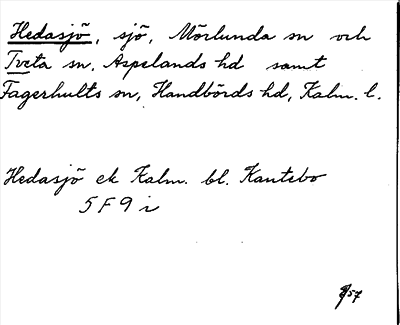 Hedasjö, sjö, Mörlunda sn och
Tveta sn, Aspelands hd samt
Fagerhults sn, Handbörds hd, Kalm. l.
Hedasjö ek Kalm. bl. Kantebo
5F9i
57